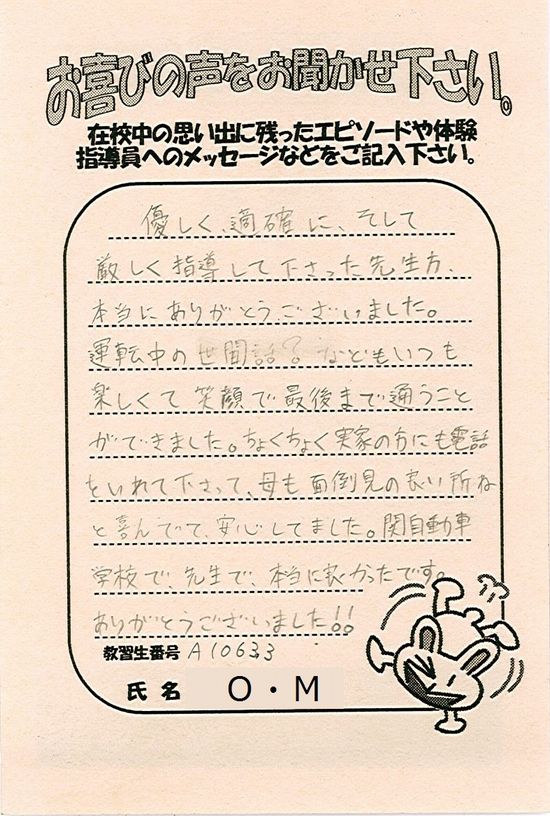 お喜びの声をお聞かせ下さい。
在校中の思い出に残ったエピソードや体験
指導員へのメッセージなどをご記入下さい。
優しく、適確に、そして
厳しく指導して下さった先生方、
本当にありがとうございました。
運転中の世間話？などもいつも
楽しくて笑顔で最後まで通うこと
ができました。ちょくちょく実家の方にも電話
をいれて下さって、母も面倒見の良い所ね
と喜んでて、安心してました。関自動車
学校で、先生で、本当に良かったです。
ありがとうございました!!
教習生番号 A10633
氏名 O・M